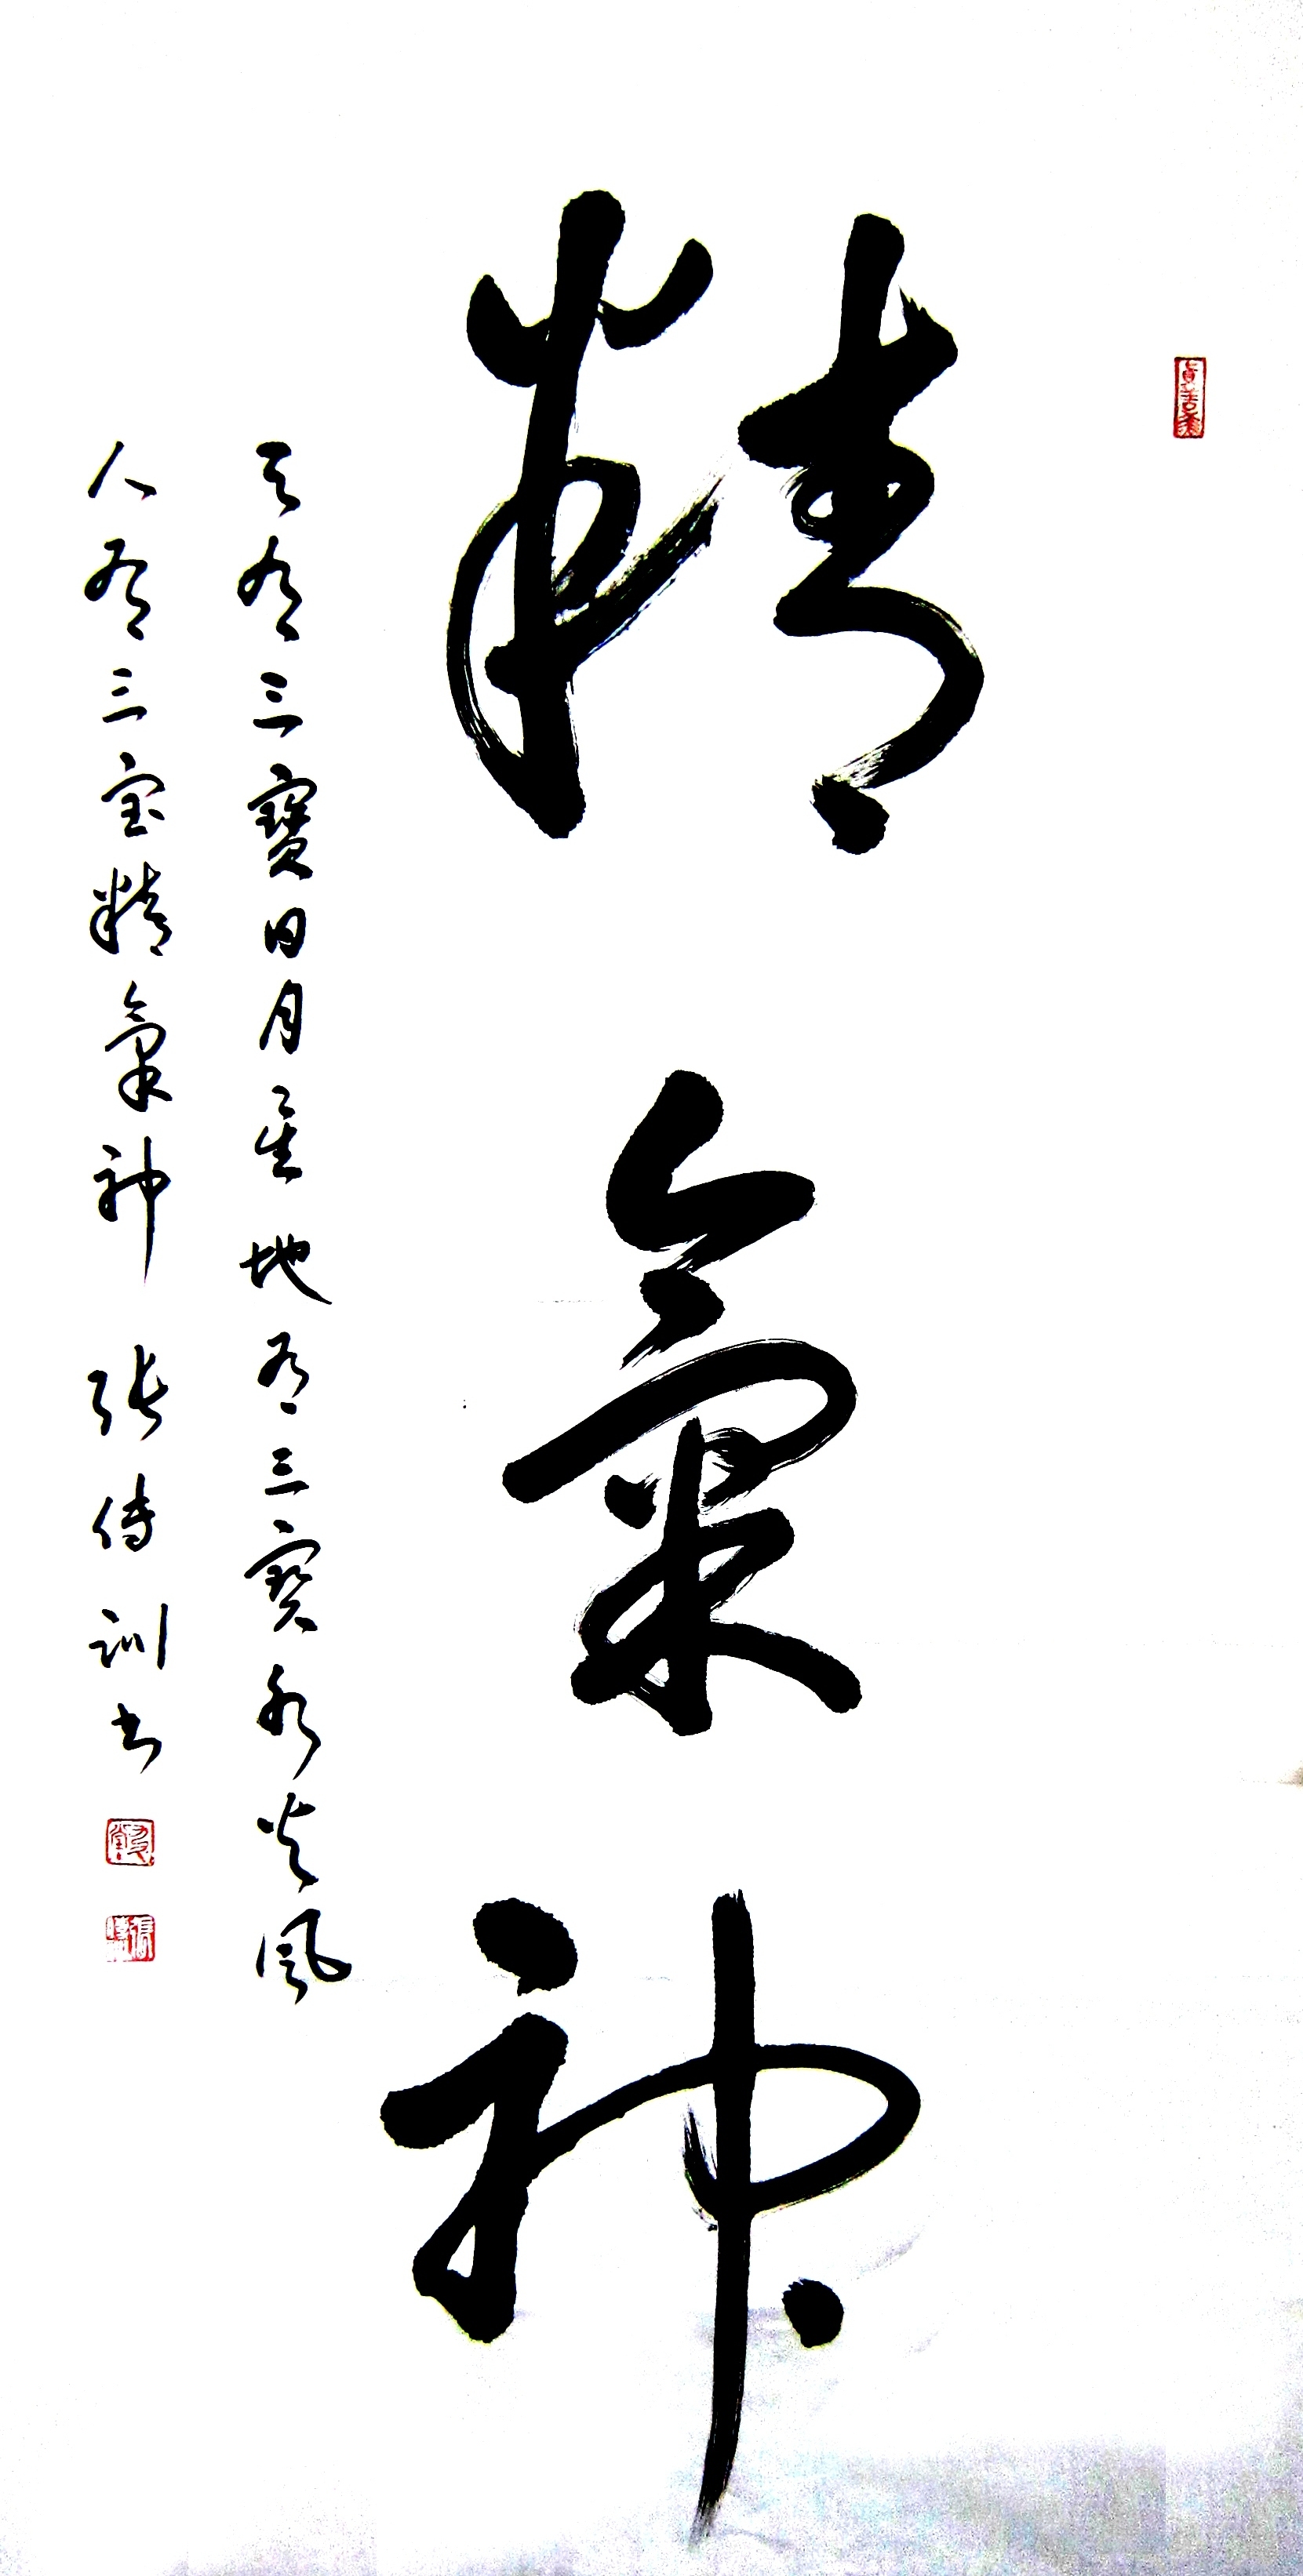 精氣神
天有三寶日月星地有三寶水火風
人有三宝精氣神 张传训书